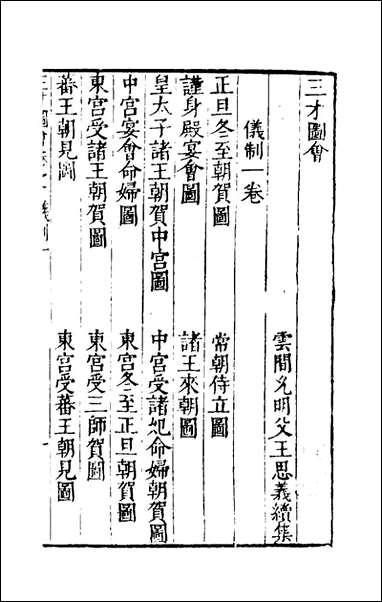 三才圖會
雲間允明父王思義續集
儀制一卷
正旦冬至朝賀圖　常朝侍立圖
謹身殿宴會圖　諸王來朝圖
皇太子諸王朝賀中宮圖　中宮受諸妃命婦朝賀圖
中宮宴會命婦圖　東宮冬至正旦朝賀圖
東宮受諸王朝賀圖　東宮受三師賀圖
蕃王朝見圖　東宮受蕃王朝見圖